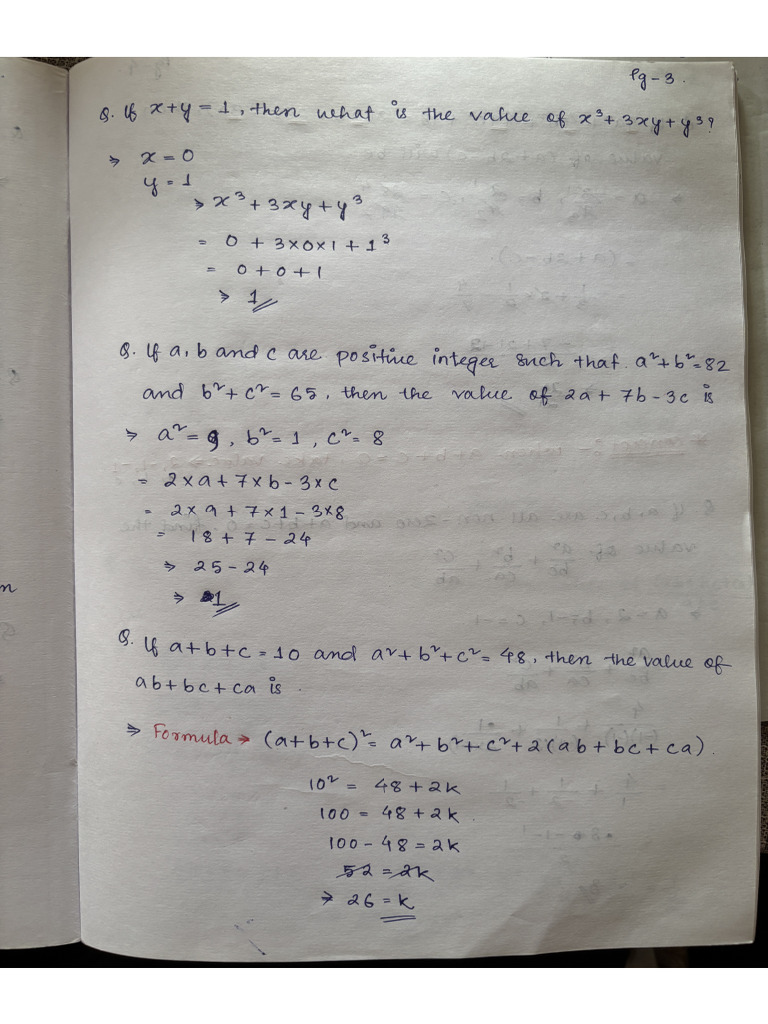 Pg-3.
Q. If x+y=1, then what is the value of x³+3xy+y³?
⇒ x=0
y=1
⇒ x³+3xy+y³
= 0+3×0×1+1³
= 0+0+1
⇒ 1
Q. If a, b and c are positive integer such that a²+b²=82
and b²+c²=65, then the value of 2a+7b-3c is
⇒ a²=9, b²=1, c²=8
= 2×a+7×b-3×c
= 2×9+7×1-3×8
= 18+7-24
⇒ 25-24
⇒ 1
Q. If a+b+c=10 and a²+b²+c²=48, then the value of
ab+bc+ca is.
⇒ Formula → (a+b+c)²=a²+b²+c²+2(ab+bc+ca).
10² = 48+2k
100 = 48+2k
100-48=2k
52=2k
⇒ 26=k